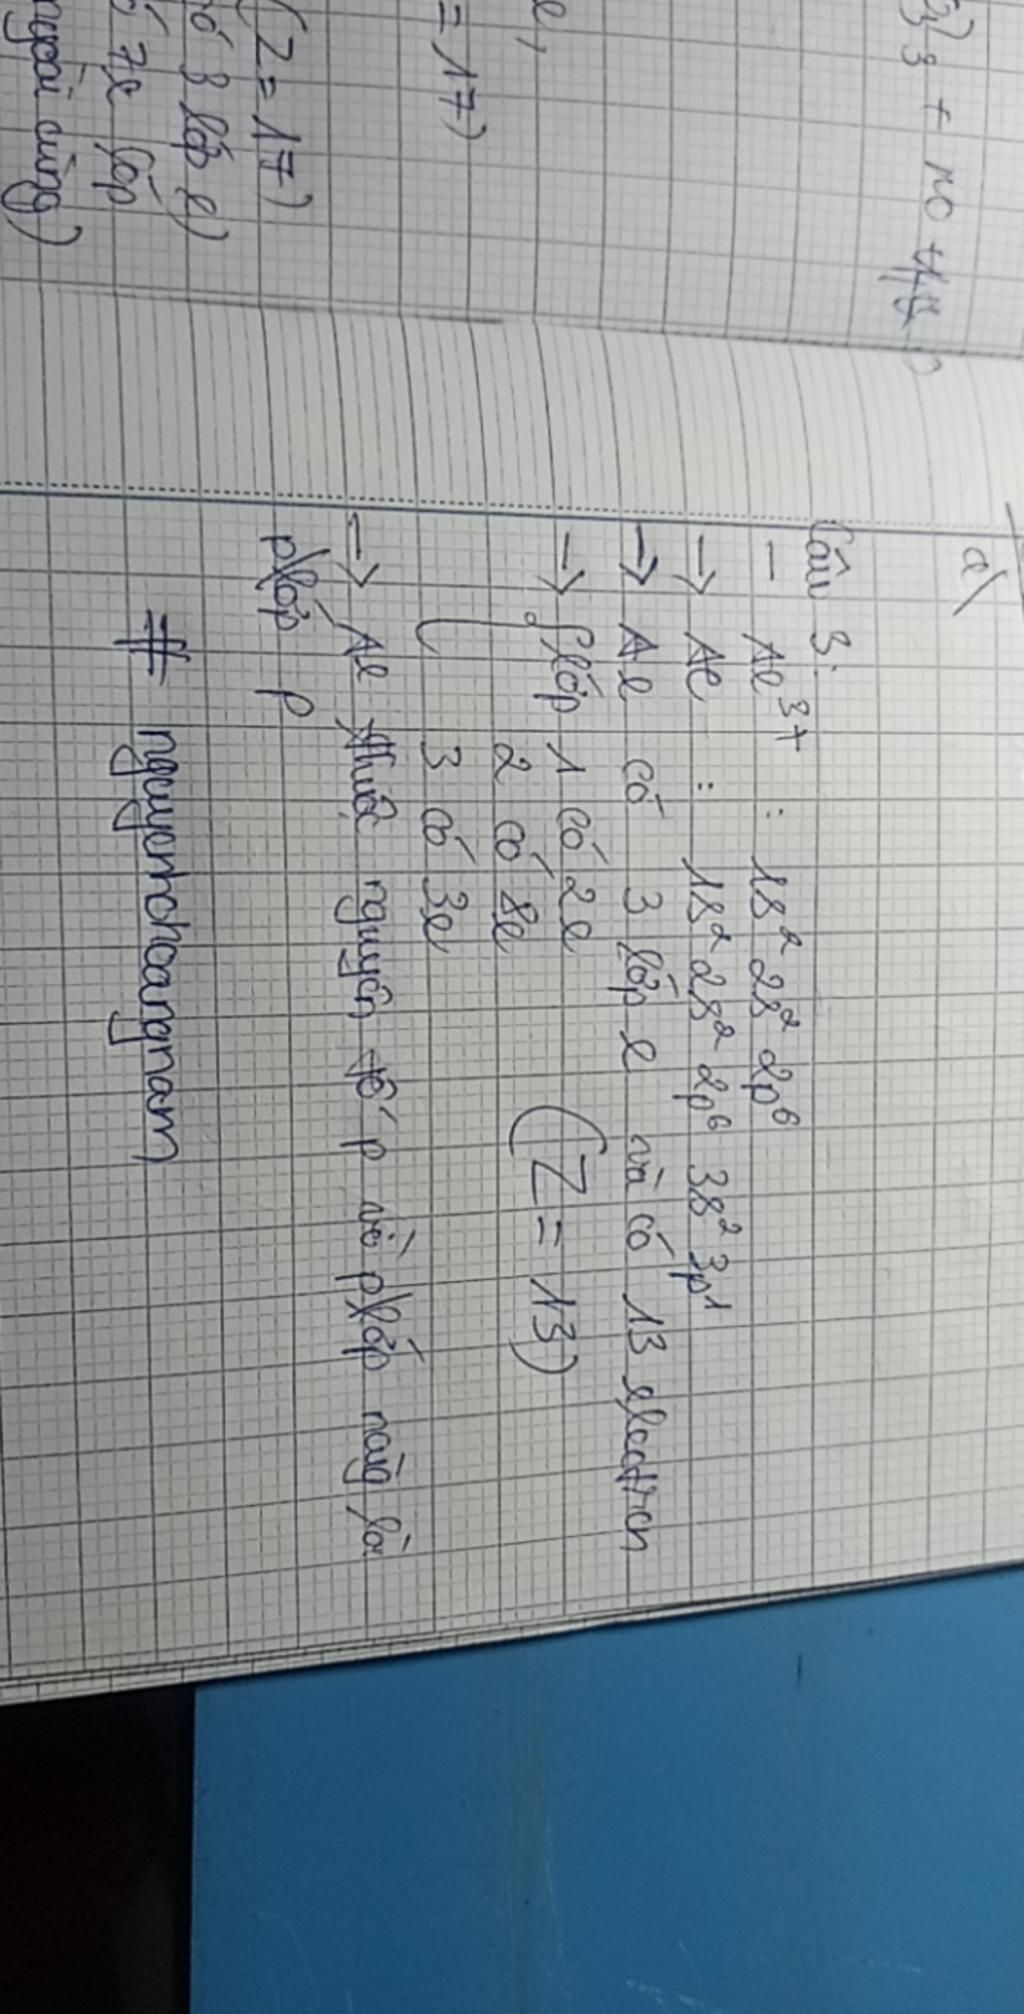 3)3 + NO
e,
= 17)
(Z = 17)
có 3 lớp e)
có 7e lớp
ngoài cùng)
a\
Câu 3:
- Al³⁺ : 1s² 2s² 2p⁶
→ Al : 1s² 2s² 2p⁶ 3s² 3p¹
→ Al có 3 lớp e và có 13 electron
→ lớp 1 có 2e (Z = 13)
2 có 8e
3 có 3e
→ Al thuộc nguyên tố p vì p/lớp ngoài là
p/lớp p
# nguyenhoangnam